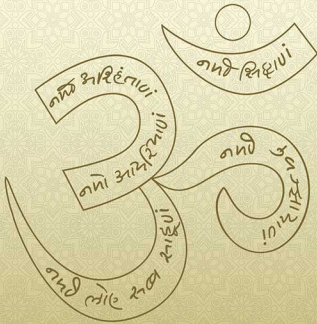 નમો અરિહંતાણં
નમો સિદ્ધાણં
નમો આયરિયાણં
નમો ઉવજ્ઝાયાણં
નમો લોએ સવ્વ સાહૂણં